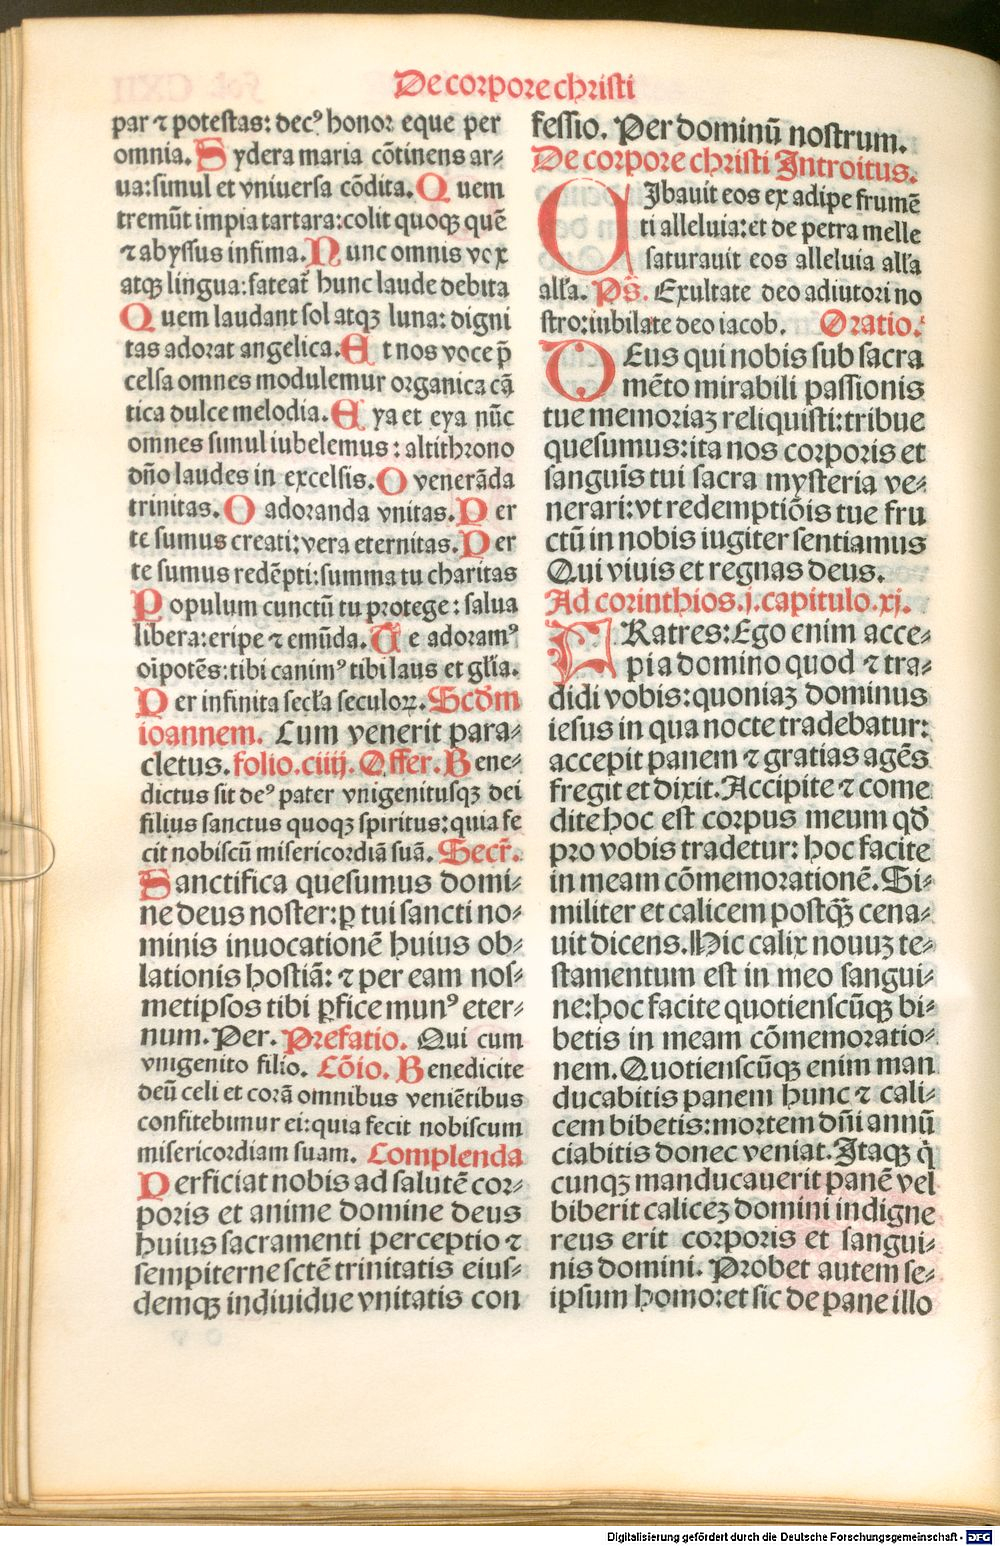 De corpore christi
par ⁊ potestas: decꝰ honor eque per
omnia. Sydera maria cõtinens ar⸗
ua: simul et vniuersa cõdita. Quem
tremũt impia tartara: colit quoqꝫ quẽ
⁊ abyssus infima. Nunc omnis vox
atqꝫ lingua: fateat᷑ hunc laude debita
Quem laudant sol atqꝫ luna: digni
tas adorat angelica. Et nos voce p̃
celsa omnes modulemur organica cã
tica dulce melodia. Eya et eya nũc
omnes simul iubelemus: altithrono
dño laudes in excelsis. O venerãda
trinitas. O adoranda vnitas. Per
te sumus creati: vera eternitas. Per
te sumus redẽpti: summa tu charitas
Populum cunctũ tu protege: salua
libera: eripe ⁊ emũda. Te adoramꝰ
oĩpotẽs: tibi canimꝰ tibi laus et gl̃ia.
Per infinita secl̃a seculoꝝ. Scd̃m
ioannem. Cum venerit para⸗
cletus. folio. ciiij. Offer. Bene⸗
dictus sit deꝰ pater vnigenitusqꝫ dei
filius sanctus quoqꝫ spiritus: quia fe
cit nobiscũ misericordiã suã. Secr̃.
Sanctifica quesumus domi⸗
ne deus noster: ꝑ tui sancti no⸗
minis inuocationẽ huius ob⸗
lationis hostiã: ⁊ per eam nos⸗
metipsos tibi ꝑfice munꝰ eter⸗
num. Per. Prefatio. Qui cum
vnigenito filio. Cõio. Benedicite
deũ celi et corã omnibus veniẽtibus
confitebimur ei: quia fecit nobiscum
misericordiam suam. Complenda
Perficiat nobis ad salutẽ cor⸗
poris et anime domine deus
huius sacramenti perceptio ⁊
sempiterne sctẽ trinitatis eius⸗
demqꝫ indiuidue vnitatis con
fessio. Per dominũ nostrum.
De corpore christi Introitus.
CIbauit eos ex adipe frumẽ
ti alleluia: et de petra melle
saturauit eos alleluia all̃a
all̃a. Ps̃. Exultate deo adiutori no
stro: iubilate deo iacob. Oratio.
DEus qui nobis sub sacra
mẽto mirabili passionis
tue memoriaꝫ reliquisti: tribue
quesumus: ita nos corporis et
sanguĩs tui sacra mysteria ve⸗
nerari: vt redemptiõis tue fru
ctũ in nobis iugiter sentiamus
Qui viuis et regnas deus.
Ad corinthios. j. capitulo. xj.
FRatres: Ego enim acce⸗
pi a domino quod ⁊ tra⸗
didi vobis: quoniaꝫ dominus
iesus in qua nocte tradebatur:
accepit panem ⁊ gratias agẽs
fregit et dixit. Accipite ⁊ come
dite hoc est corpus meum qd̃
pro vobis tradetur: hoc facite
in meam cõmemorationẽ. Si⸗
militer et calicem postqꝫ̃ cena⸗
uit dicens. Hic calix nouuꝫ te⸗
stamentum est in meo sangui⸗
ne: hoc facite quotienscũqꝫ bi⸗
betis in meam cõmemoratio⸗
nem. Quotienscũqꝫ enim man
ducabitis panem hunc ⁊ cali⸗
cem bibetis: mortem dñi annũ
ciabitis donec veniat. Itaqꝫ q̇
cunqꝫ manducauerit panẽ vel
biberit caliceꝫ domini indigne
reus erit corporis et sangui⸗
nis domini. Probet autem se⸗
ipsum homo: et sic de pane illo
Digitalisierung gefördert durch die Deutsche Forschungsgemeinschaft - DFG